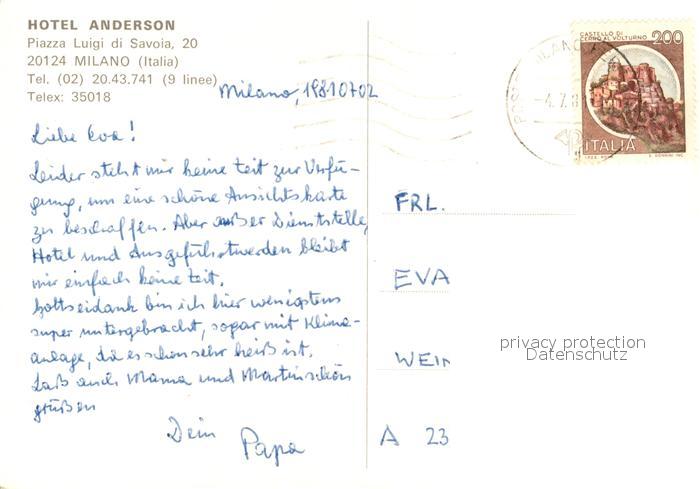 HOTEL ANDERSON
Piazza Luigi di Savoia, 20
20124 MILANO (Italia)
Tel. (02) 20.43.741 (9 linee)
Telex: 35018
Milano, 19810702
Liebe Eva!
Leider steht mir keine Zeit zur Verfü-
gung, um eine schöne Ansichtskarte
zu beschaffen. Aber außer Dienststelle,
Hotel und Ausgeführtwerden bleibt
mir einfach keine Zeit.
Gottseidank bin ich hier wenigstens
super untergebracht, sogar mit Klima-
anlage, da es schon sehr heiß ist.
Laß auch Mama und Martin schön
grüßen
Dein
Papa
CASTELLO DI
CERRO AL VOLTURNO
200
ITALIA
MILANO
-4.7.8
FRL.
EVA
WEIN
A 23
privacy protection
Datenschutz